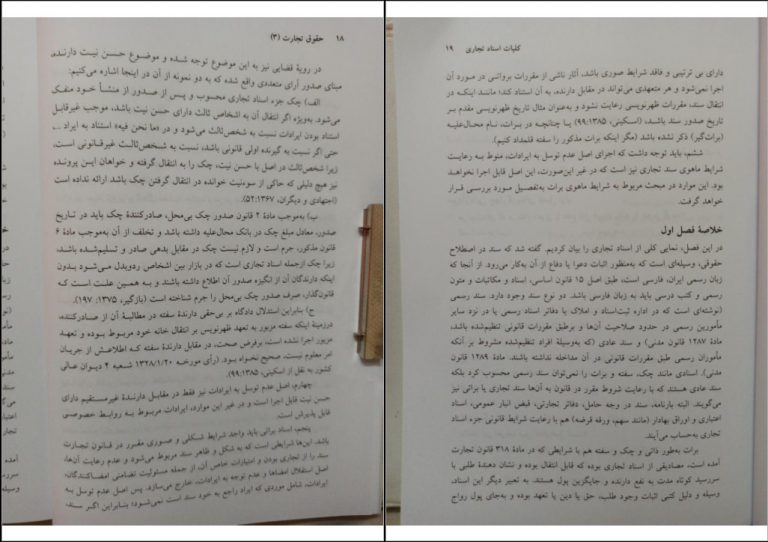 ۱۸ حقوق تجارت (۳)
در رویهٔ قضایی نیز به این موضوع توجه شده و موضوع حسن نیت دارنده،
مبنای صدور آرای متعددی واقع شده که به دو نمونه از آن در اینجا اشاره می‌کنیم:
الف) چک جزء اسناد تجاری محسوب و پس از صدور از منشأ خود منفک
می‌شود. به‌ویژه اگر انتقال آن به اشخاص ثالث دارای حسن نیت باشد، موجب غیرقابل
استناد بودن ایرادات نسبت به شخص‌ثالث می‌شود و در «ما نحن فیه» استناد به ایراد ...
حتی اگر نسبت به گیرنده اولی قانونی باشد، نسبت به شخص‌ثالث غیرقانونی است،
زیرا شخص‌ثالث در اصل با حسن نیت، چک را به انتقال گرفته و خواهان این پرونده
نیز هیچ دلیلی که حاکی از سوءنیت خوانده در انتقال گرفتن چک باشد ارائه نداده است
(اجتهادی و دیگران، ۵۲:۱۳۶۷).
ب) به‌موجب مادهٔ ۲ قانون صدور چک بی‌محل، صادرکنندهٔ چک باید در تاریخ
صدور، معادل مبلغ چک در بانک محال‌علیه داشته باشد و تخلف از آن به‌موجب مادهٔ ۶
قانون مذکور، جرم است و لازم نیست چک در مقابل بدهی صادر و تسلیم‌شده باشد،
زیرا چک ازجمله اسناد تجاری است که در بازار بین اشخاص ردوبدل می‌شود بدون
اینکه دارندگان آن از انگیزه صدور آن اطلاع داشته باشند و به همین علت است که
قانون‌گذار، صرف صدور چک بی‌محل را جرم شناخته است (بازگیر، ۱۳۷۵: ۱۹۷).
ج) بنابراین استدلال دادگاه بر بی‌حقی دارندهٔ سفته در مطالبهٔ آن از صادرکننده،
درزمینهٔ اینکه سفته مزبور به تعهد ظهرنویس بر انتقال خانه خود مربوط بوده و تعهد
مزبور اجرا نشده است، برفرض صحت، در مقابل دارندهٔ سفته که اطلاعش از جریان
امر معلوم نیست، صحیح نخواهد بود. (رأی مورخه ۱۳۲۸/۱/۲۰ شعبه ۴ دیوان عالی
کشور به نقل از اسکینی، ۹۹:۱۳۸۵).
چهارم، اصل عدم توسل به ایرادات نیز فقط در مقابل دارندهٔ غیرمستقیم دارای
حسن نیت قابل اجرا است و در غیر این موارد، ایرادات مربوط به روابط خصوصی
قابل پذیرش است.
پنجم، اسناد براتی باید واجد شرایط شکلی و صوری مقرر در قانون تجارت
باشد. این‌ها شرایطی است که به شکل و ظاهر سند مربوط می‌شود و عدم رعایت آن‌ها،
سند را از تجاری بودن و اعتبارات خاص آن، از جمله مسئولیت تضامنی امضاکنندگان،
اصل استقلال امضاها و عدم توجه به ایرادات، خارج می‌سازد. پس اصل عدم توسل به
ایرادات، شامل موردی که ایراد راجع به خود سند است نمی‌شود؛ بنابراین اگر سند،
کلیات اسناد تجاری ۱۹
دارای بی ترتیبی و فاقد شرایط صوری باشد، آثار ناشی از مقررات برواتی در مورد آن
اجرا نمی‌شود و هر متعهدی می‌تواند در مقابل دارنده، به آن استناد کند؛ مانند اینکه در
انتقال سند، مقررات ظهرنویسی رعایت نشود و به‌عنوان مثال تاریخ ظهرنویسی مقدم بر
تاریخ صدور سند باشد، (اسکینی، ۹۹:۱۳۸۵) یا چنانچه در برات، نام محال‌علیه
(برات‌گیر) ذکر نشده باشد (مگر اینکه برات مذکور را سفته قلمداد کنیم).
ششم، باید توجه داشت که اجرای اصل عدم توسل به ایرادات، منوط به رعایت
شرایط ماهوی سند تجاری نیز است که در غیر این‌صورت، این اصل قابل اجرا نخواهد
بود. این موارد در مبحث مربوط به شرایط ماهوی برات به‌تفصیل مورد بررسی قرار
خواهد گرفت.
خلاصهٔ فصل اول
در این فصل، نمایی کلی از اسناد تجاری را بیان کردیم. گفته شد که سند در اصطلاح
حقوقی، وسیله‌ای است که به‌منظور اثبات دعوا یا دفاع از آن به‌کار می‌رود. از آنجا که
زبان رسمی ایران، فارسی است، طبق اصل ۱۵ قانون اساسی، اسناد و مکاتبات و متون
رسمی و کتب درسی باید به زبان فارسی باشد. دو نوع سند وجود دارد. سند رسمی
(نوشته‌ای است که در اداره ثبت‌اسناد و املاک یا دفاتر اسناد رسمی یا در نزد سایر
مأمورین رسمی در حدود صلاحیت آن‌ها و برطبق مقررات قانونی تنظیم‌شده باشد،
مادهٔ ۱۲۸۷ قانون مدنی) و سند عادی (که به‌وسیلهٔ افراد تنظیم‌شده مشروط بر آنکه
مأموران رسمی طبق مقررات قانونی در آن مداخله نداشته باشند. مادهٔ ۱۲۸۹ قانون
مدنی). اسنادی مانند چک، سفته و برات را نمی‌توان سند رسمی محسوب کرد بلکه
سند عادی هستند که با رعایت شروط مقرر در قانون به آن‌ها سند تجاری یا براتی نیز
می‌گویند. البته بارنامه، سند در وجه حامل، دفاتر تجارتی، قبض انبار عمومی، اسناد
اعتباری و اوراق بهادار (مانند سهم، ورقه قرضه) هم با رعایت شروط قانونی جزء اسناد
تجاری به‌حساب می‌آیند.
برات به‌طور ذاتی و چک و سفته هم با شرایطی که در مادهٔ ۳۱۸ قانون تجارت
آمده است، مصادیقی از اسناد تجاری بوده که قابل انتقال بوده و نشان دهندهٔ طلبی با
سررسید کوتاه مدت به نفع دارنده و جایگزین پول هستند. به تعبیر دیگر این اسناد،
وسیله و دلیل کتبی اثبات وجود طلب، حق یا دین یا تعهد بوده و به‌جای پول رواج